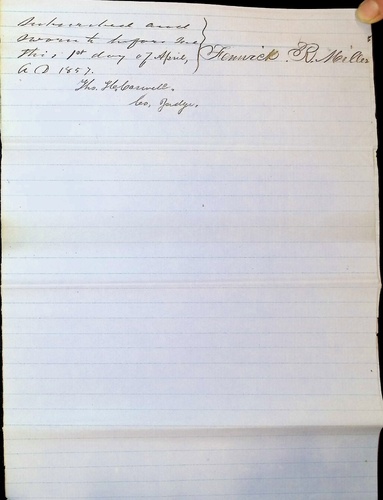 Subscribed and
sworn to before me
this, 1st day of April, Fenwick. R. Miller
A D 1857.
Tho. H. Caswell.
Co. Judge.